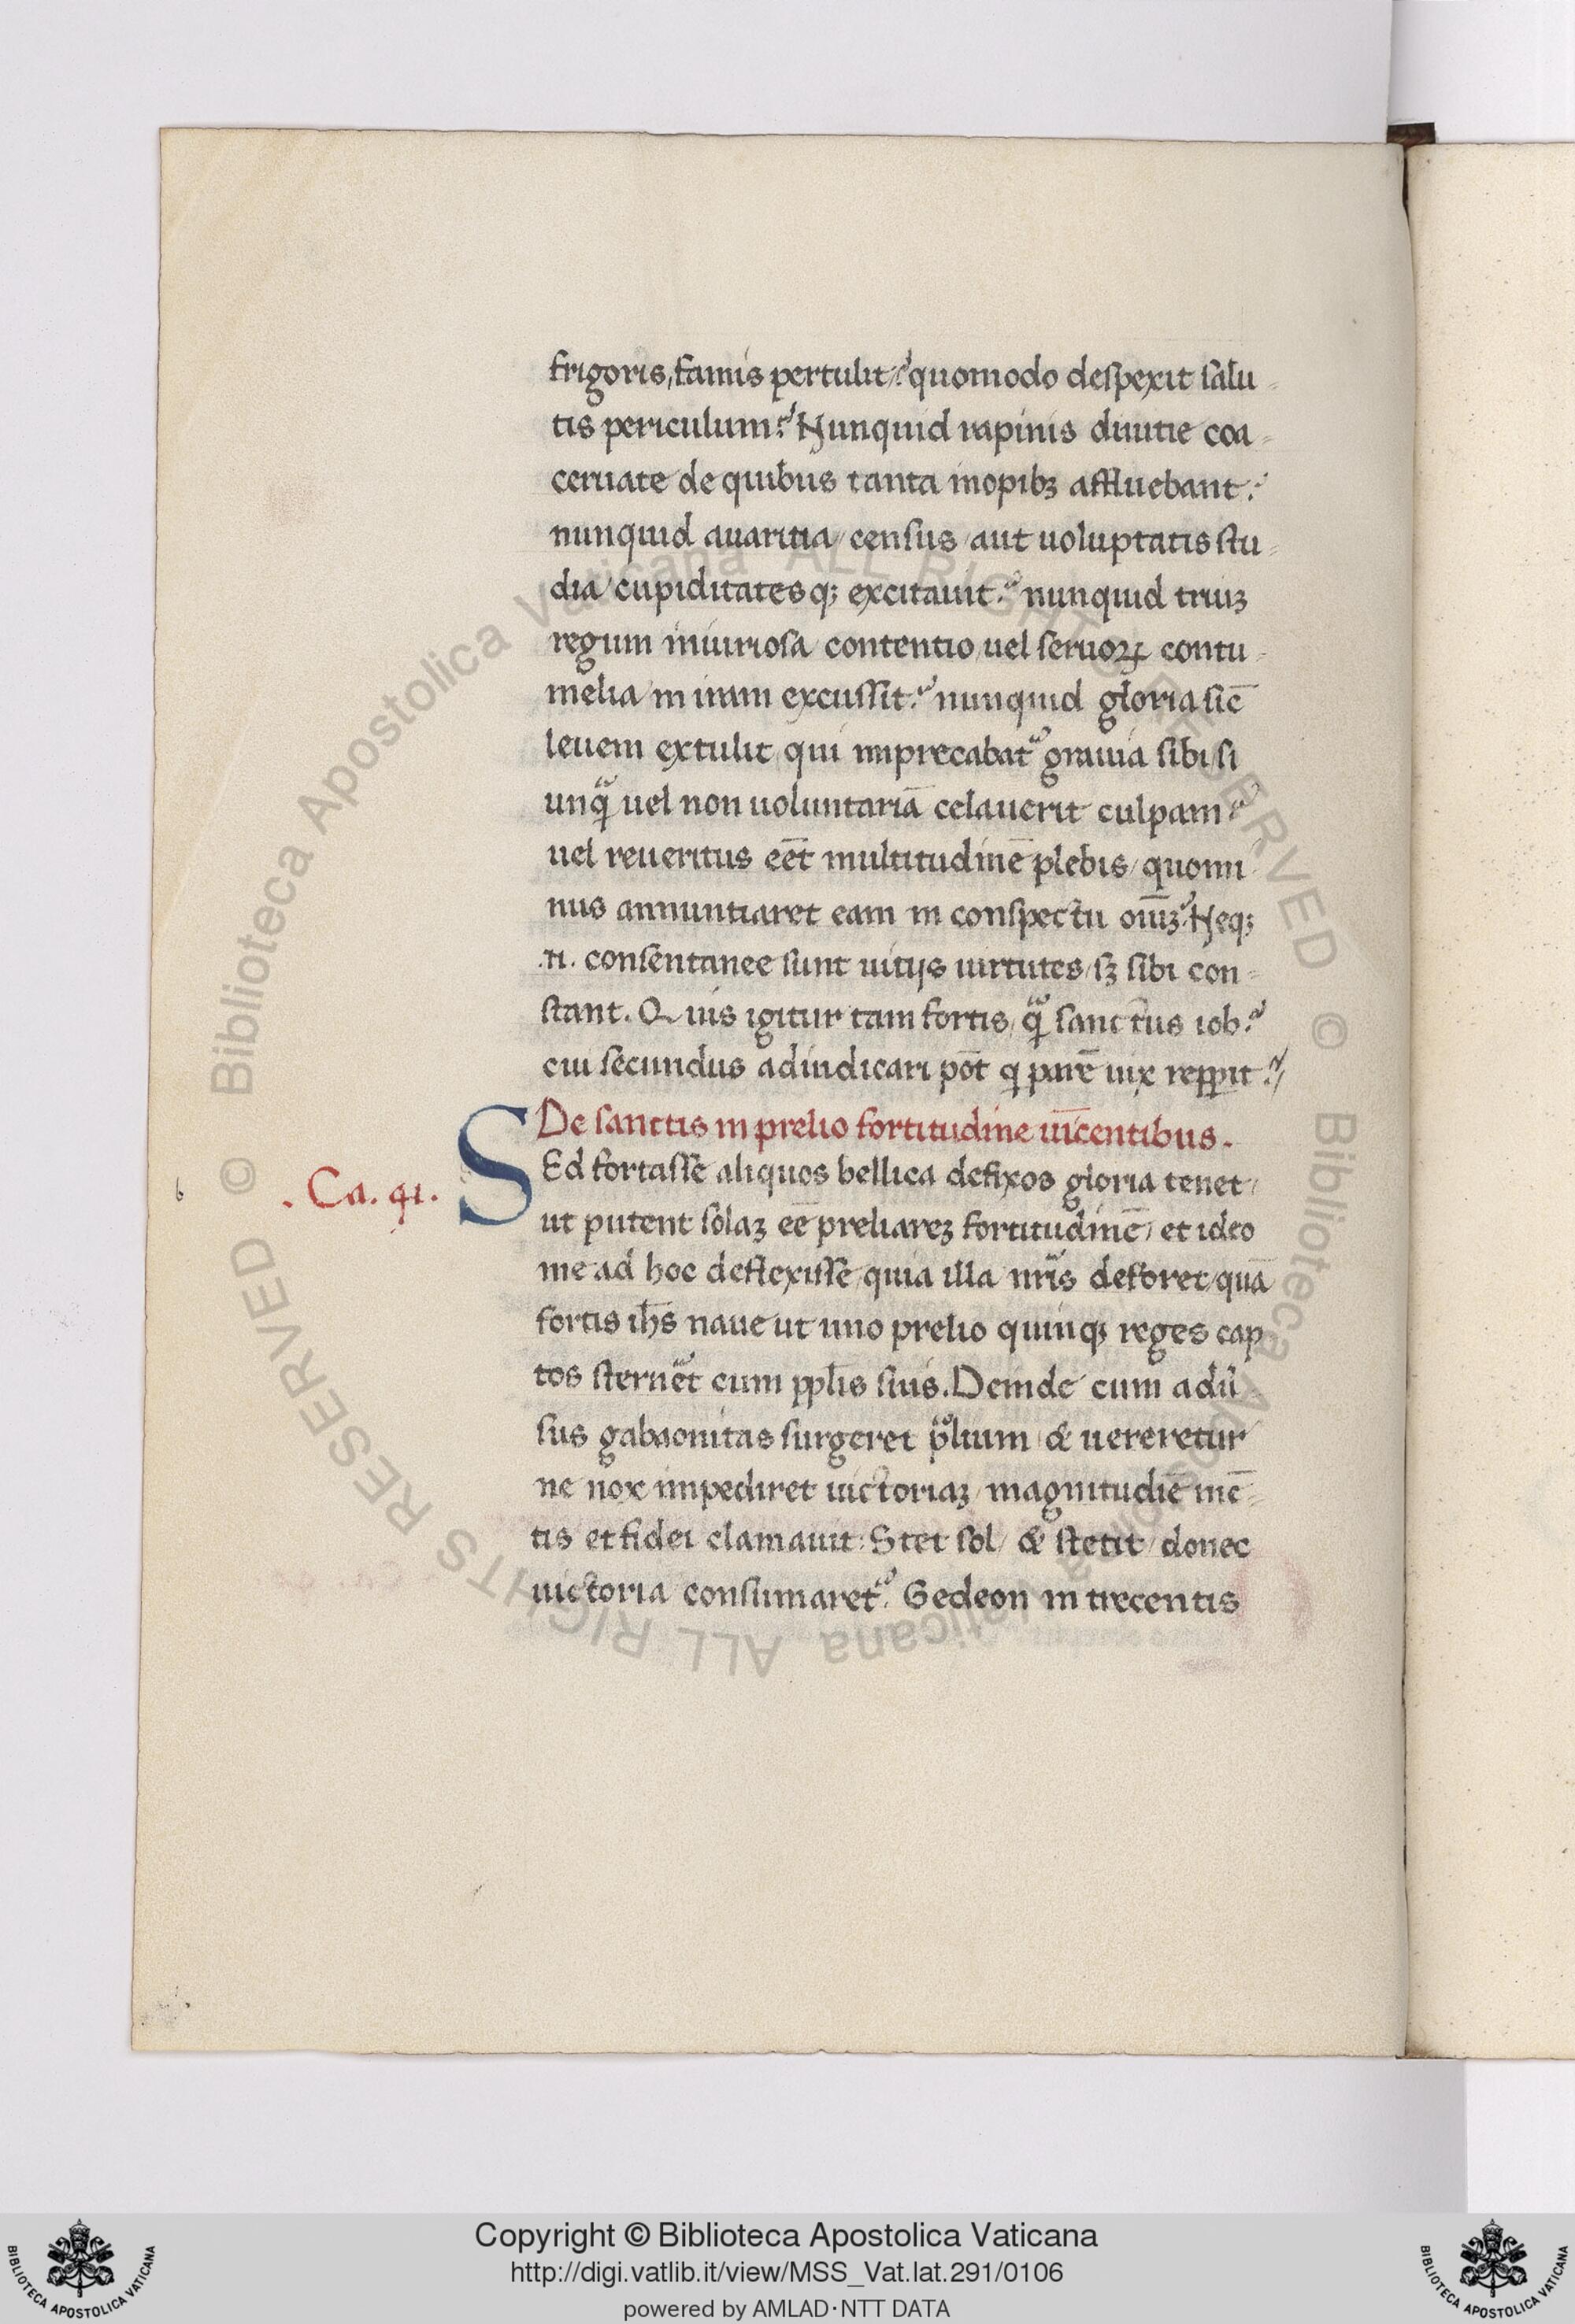 frigoris, famis pertulit? quomodo despexit salu-
tis periculum? Nunquid rapinis diuitie coa-
ceruate de quibus tanta inopibꝫ affluebant?
nunquid auaritia/ census/ aut uoluptatis stu-
dia/ cupiditatesqꝫ excitauit? nunquid triuꝫ
regum iniuriosa contentio/ uel seruoꝝ contu-
melia/ in iram excussit? nunquid gloria sic̄
leuem extulit/ qui imprecabat᷑ grauia sibi/ si
unqᷓ uel non uoluntariā celauerit culpam?
uel reueritus eēt multitudinē plebis/ quomi
nus annuntiaret eam in conspectu oiūꝫ? Neqꝫ
.n. consentanee sunt uitijs uirtutes/ sꝫ sibi con-
stant. Quis igitur tam fortis/ qᷓ sanctus iob?
cui secundus adiudicari pōt q parē uix repperit?/
De sanctis in prelio fortitudine uīcentibus.
. Ca. 41.
SEd fortasse aliquos bellica defixos gloria tenet/
ut putent solaꝫ eē preliareꝫ fortitudinē/ et ideo
me ad hoc deflexisse/ quia illa nr̄is deforet/ quā
fortis ih̄s naue ut uno prelio quinqꝫ reges cap
tos sternēt cum ppl̄is suis. Deinde cum adū
sus gabaonitas surgeret p̄lium/ & uereretur
ne nox impediret uictoriaꝫ/ magnitudiē mē-
tis et fidei clamauit: Stet sol/ & stetit/ donec
uictoria consumaret᷑. Gedeon in trecentis
b
© Biblioteca Apostolica Vaticana ALL RIGHTS RESERVED © Biblioteca Apostolica Vaticana ALL RIGHTS RESERVED
Copyright © Biblioteca Apostolica Vaticana
http://digi.vatlib.it/view/MSS_Vat.lat.291/0106
powered by AMLAD·NTT DATA
BIBLIOTECA APOSTOLICA VATICANA
BIBLIOTECA APOSTOLICA VATICANA